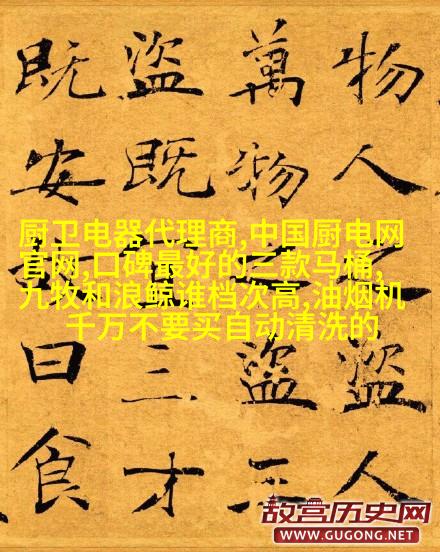 物人盜人
萬物盜三
盜既三才
既安曰食
厨卫电器代理商,中国厨电网
官网,口碑最好的三款马桶,
九牧和浪鲸谁档次高,油烟机
千万不要买自动清洗的
故宫历史网
WWW.GUGONG.NET